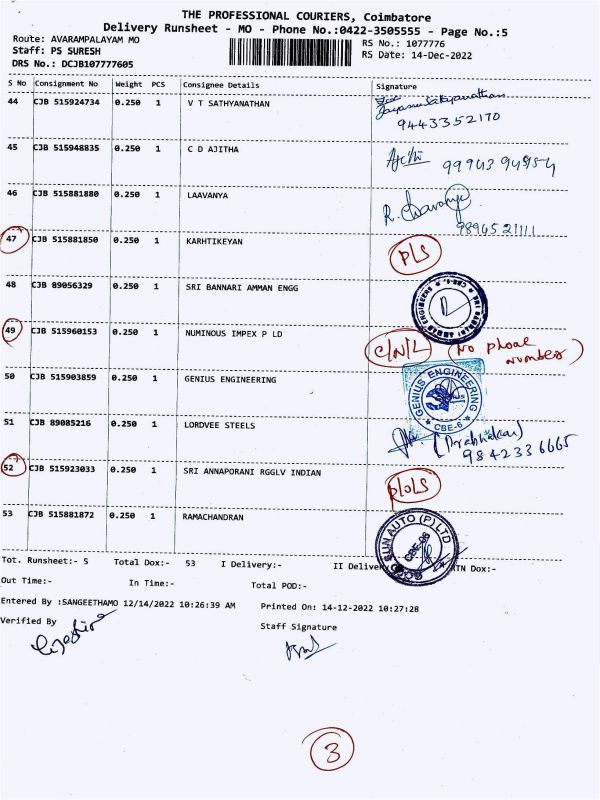 THE PROFESSIONAL COURIERS, Coimbatore
Delivery Runsheet - MO - Phone No.:0422-3505555 - Page No.:5
Route: AVARAMPALAYAM MO
RS No.: 1077776
Staff: PS SURESH
RS Date: 14-Dec-2022
DRS No.: DCJB107777605
S No Consignment No Weight PCS Consignee Details Signature
44 CJB 515924734 0.250 1 V T SATHYANATHAN
9443352170
45 CJB 515948835 0.250 1 C D AJITHA
46 CJB 515881880 0.250 1 LAAVANYA
47 CJB 515881850 0.250 1 KARHTIKEYAN P/S
48 CJB 89056329 0.250 1 SRI BANNARI AMMAN ENGG
49 CJB 515960153 0.250 1 NUMINOUS IMPEX P LD C/N/L (No phone
number)
50 CJB 515903859 0.250 1 GENIUS ENGINEERING GENIUS ENGINEERING
* CBE-6 *
51 CJB 89085216 0.250 1 LORDVEE STEELS (Prabhakar)
9842336665
52 CJB 515923033 0.250 1 SRI ANNAPORANI RGGLV INDIAN
53 CJB 515881872 0.250 1 RAMACHANDRAN
SUN AUTO (P) LTD
Tot. Runsheet:- 5 Total Dox:- 53 I Delivery:- II Delivery RTN Dox:-
Out Time:- In Time:- Total POD:-
Entered By :SANGEETHAMO 12/14/2022 10:26:39 AM Printed On: 14-12-2022 10:27:28
Verified By Staff Signature
3